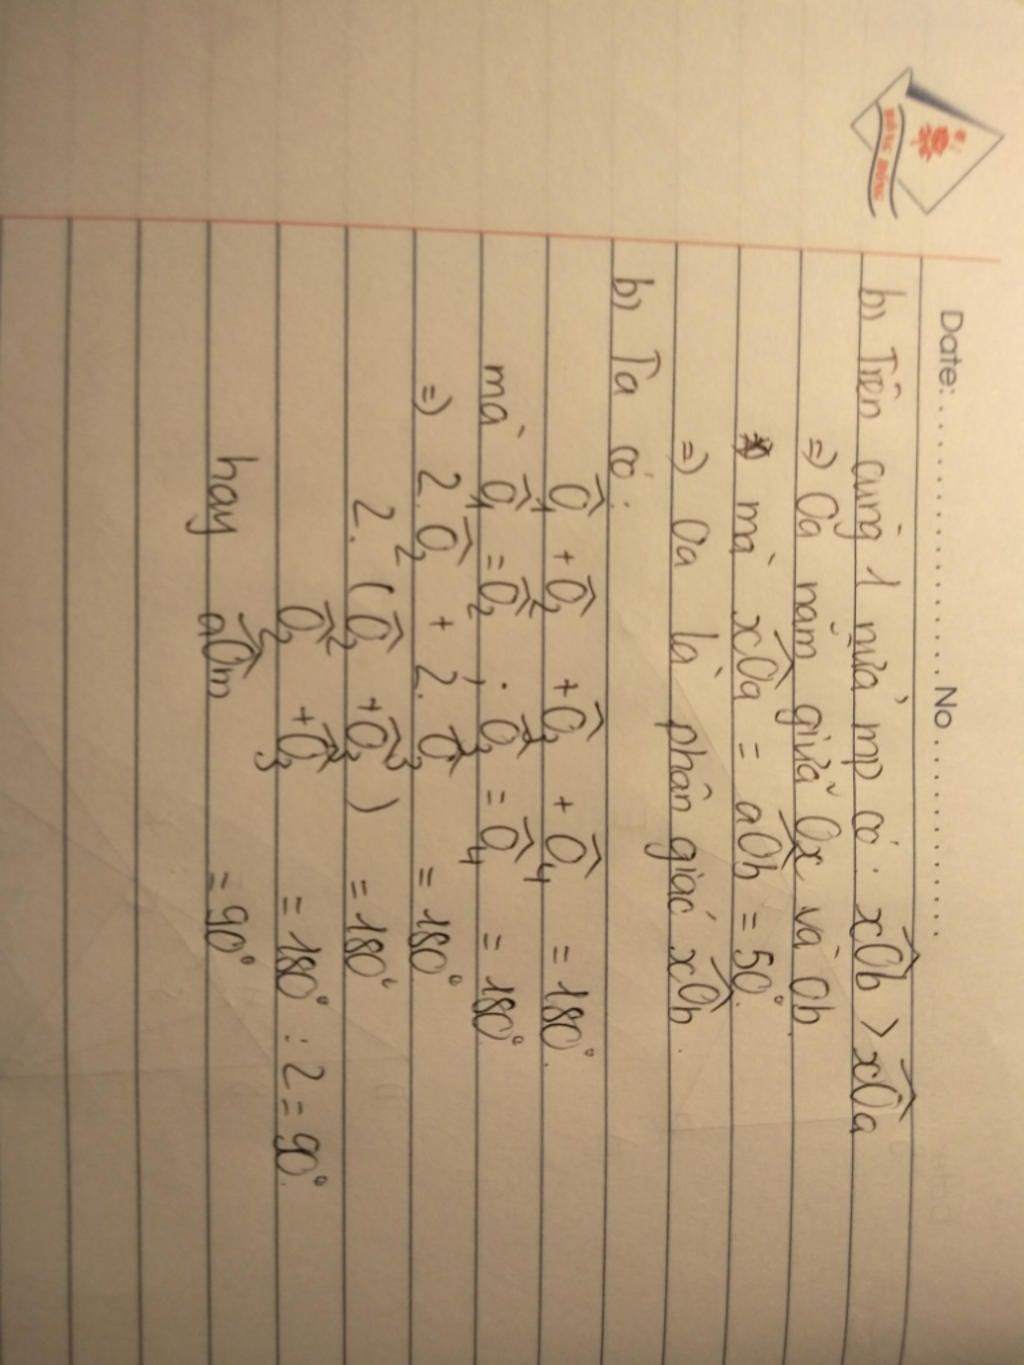 HỒNG DŨNG
Date: .................. No ..................
b) Trên cùng 1 nửa mp có: xÔb > xÔa
=) Oa nằm giữa Ox và Ob.
mà xÔa = aÔb = 50°.
=) Oa là phân giác xÔb.
b) Ta có:
Ô1 + Ô2 + Ô3 + Ô4 = 180°.
mà Ô1 = Ô2 ; Ô3 = Ô4 = 180°.
=) 2.Ô2 + 2.Ô3 = 180°.
2.(Ô2 + Ô3) = 180°
Ô2 + Ô3 = 180° : 2 = 90°.
hay aÔm = 90°